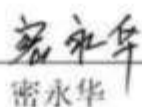 密永华
密永华